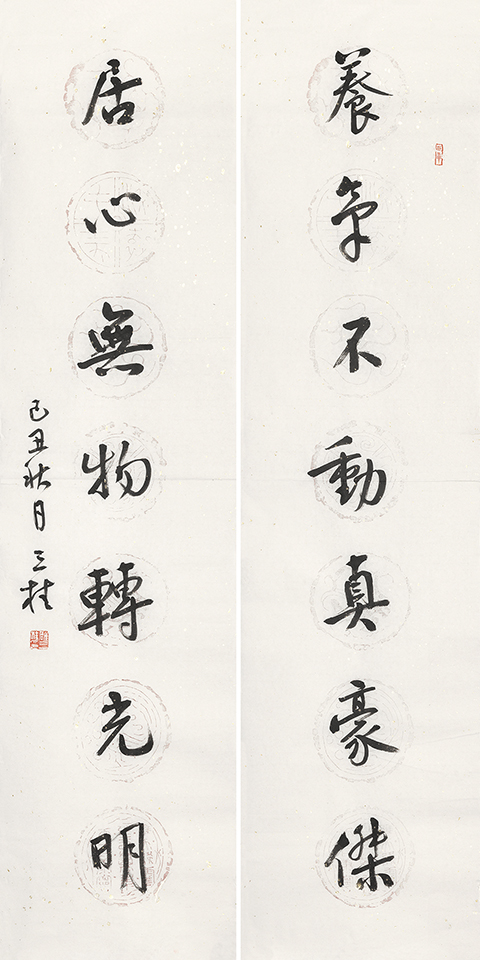 養氣不動真豪傑
居心無物轉光明
己丑秋月 三桂